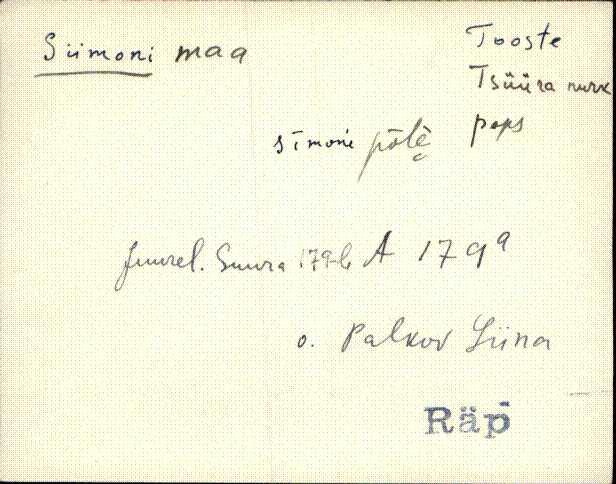 Siimoni maa
Tooste
Tsüüra nurk
paps
simoni põlɛ̀
juurel. Suura 179-b A 179a
o. Palkov Liina
Räp̄